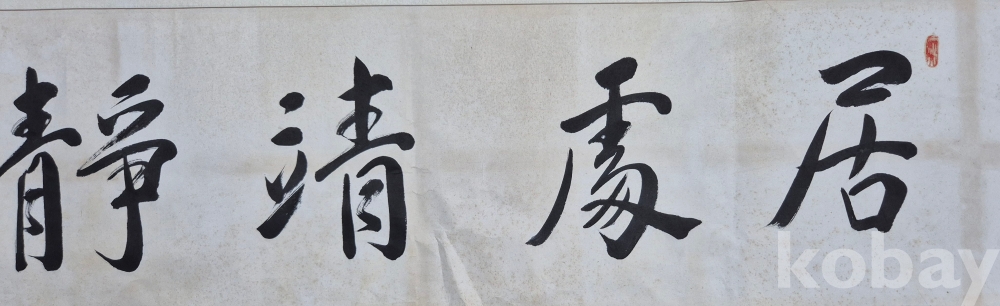 居處靖靜
kobay